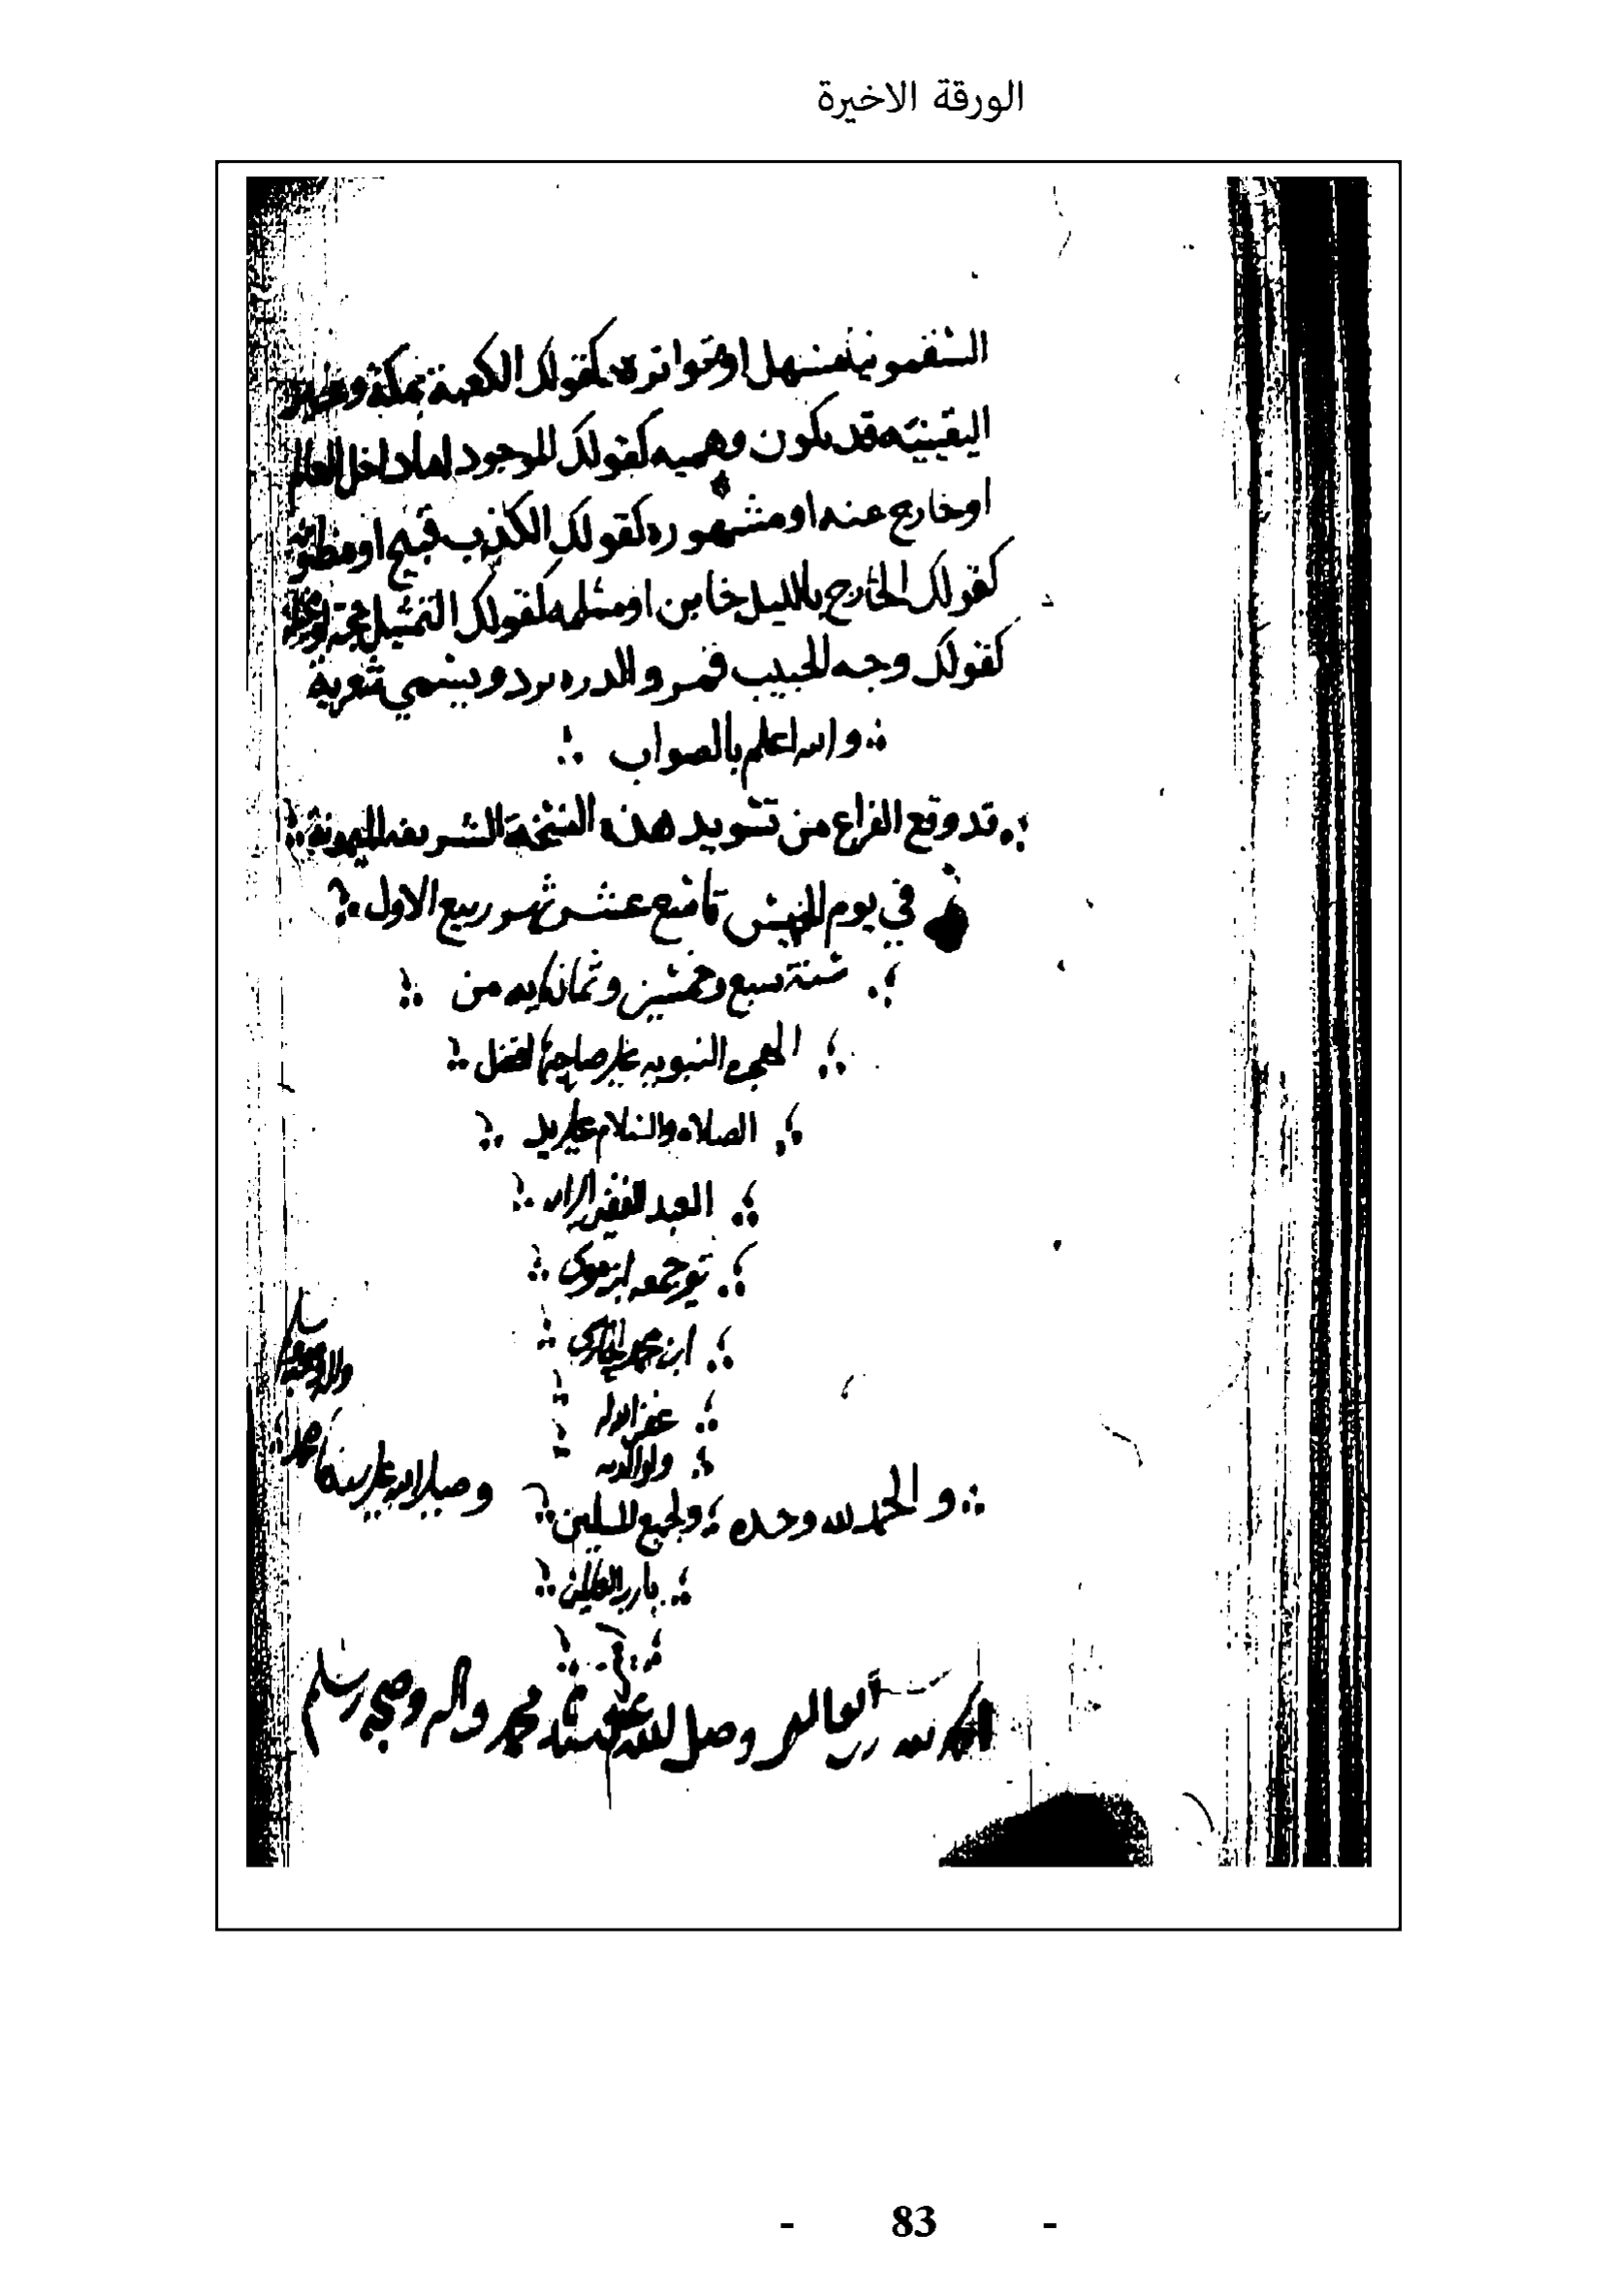 الورقة الاخيرة
السقمونيا مسهل او متواتره كقولك الكعبة بمكة وغير
اليقينيه قد يكون وهميه كقولك الموجود اما داخل العالم
او خارج عنه او مشهوره كقولك الكذب قبيح او مظنونه
كقولك الخارج بالليل خاين او مسلمه كقولك التمثيل حجة
كقولك وجه الحبيب قمر والدره برد ويسمي شعرية
والله اعلم بالصواب
قد وقع الفراغ من تسويد هذه النسخة الشريفه الميمونة
في يوم الخميس تاسع عشر شهر ربيع الاول
سنة سبع وخمسين وثمانمايه من
الهجره النبويه علي صاحبها افضل
الصلاه والسلام علي يد
العبد الفقير الي الله
ابن محمد
غفر الله له
ولوالديه
والحمد لله وحده ولجميع المسلمين وصلي الله علي سيدنا محمد
واله وصحبه وسلم
يا رب العالمين
الحمد لله رب العالمين وصلى الله على سيدنا محمد واله وصحبه وسلم
- 83 -